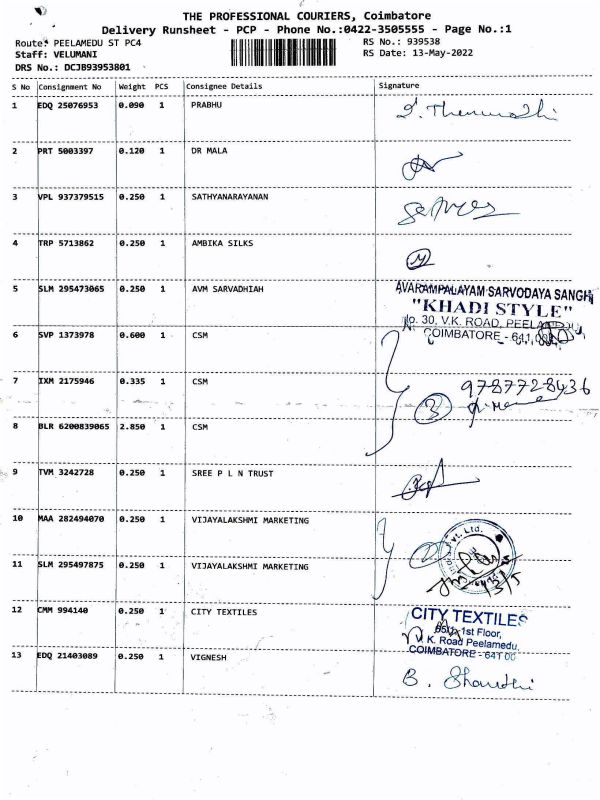 THE PROFESSIONAL COURIERS, Coimbatore
Delivery Runsheet - PCP - Phone No.:0422-3505555 - Page No.:1
Route: PEELAMEDU ST PC4 RS No.: 939538
Staff: VELUMANI RS Date: 13-May-2022
DRS No.: DCJB93953801
S No Consignment No Weight PCS Consignee Details Signature
1 EDQ 25076953 0.090 1 PRABHU
2 PRT 5003397 0.120 1 DR MALA
3 VPL 937379515 0.250 1 SATHYANARAYANAN
4 TRP 5713862 0.250 1 AMBIKA SILKS
5 SLM 295473065 0.250 1 AVM SARVADHIAH
AVARAMPALAYAM SARVODAYA SANGH
"KHADI STYLE"
No. 30, V.K. ROAD, PEELAMEDU,
COIMBATORE - 641 004
6 SVP 1373978 0.600 1 CSM
7 IXM 2175946 0.335 1 CSM 9787728436
3
8 BLR 6200839065 2.850 1 CSM
9 TVM 3242728 0.250 1 SREE P L N TRUST
10 MAA 282494070 0.250 1 VIJAYALAKSHMI MARKETING
2 Pvt. Ltd.
11 SLM 295497875 0.250 1 VIJAYALAKSHMI MARKETING
13/5
12 CMM 994140 0.250 1 CITY TEXTILES
CITY TEXTILES
1st Floor,
V. K. Road Peelamedu,
COIMBATORE - 641 00
13 EDQ 21403089 0.250 1 VIGNESH
B.